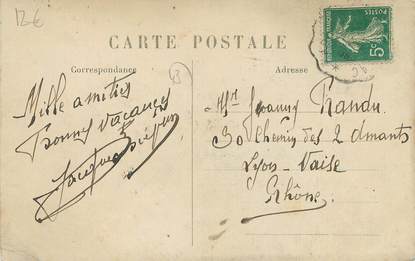 12€
CARTE POSTALE
Correspondance
Adresse
43
Mille amitiés
Bonnes vacances
Jacques
Mr Joanny
30 Chemin des 2 Amants
Lyon-Vaise
Rhône
POSTES
5c